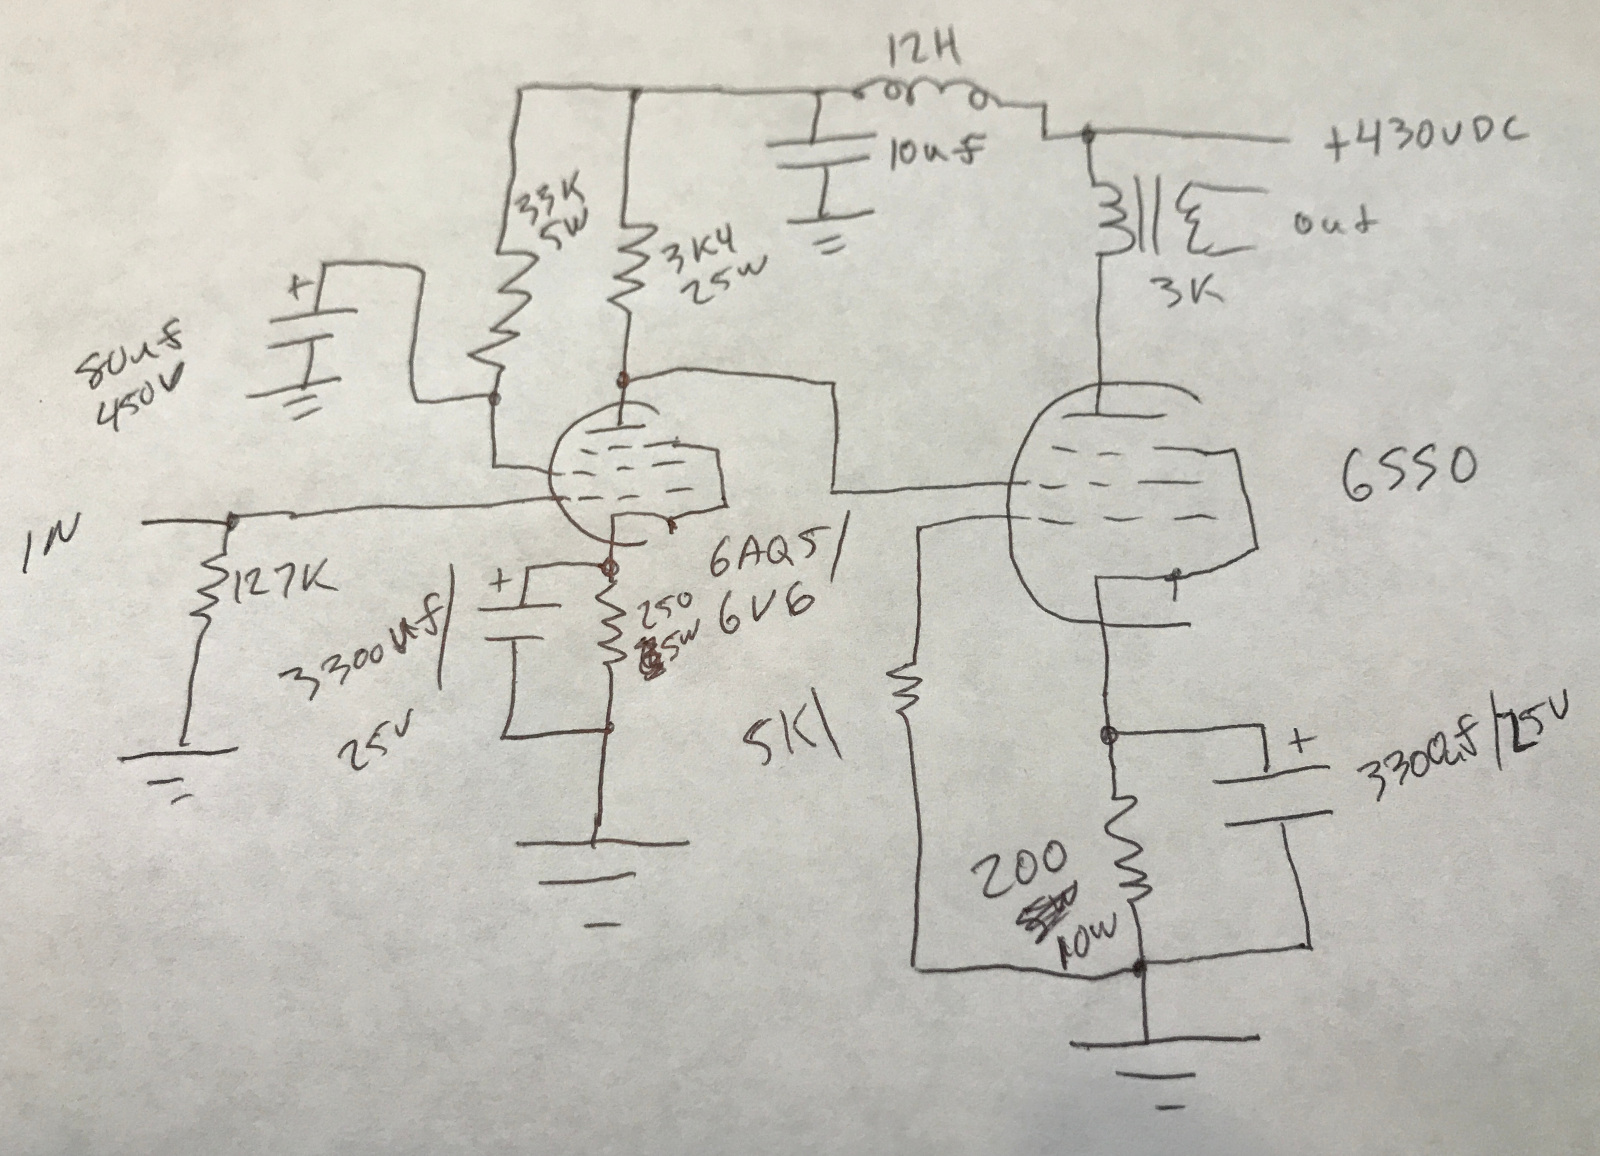 12H
+430VDC
10uf
33K
5W
3K4
25W
out
3K
+
80uf
450V
6550
IN
127K
+
6AQ5/
6V6
250
5W
3300uf/
25V
5K/
+
3300uf/25V
200
10W